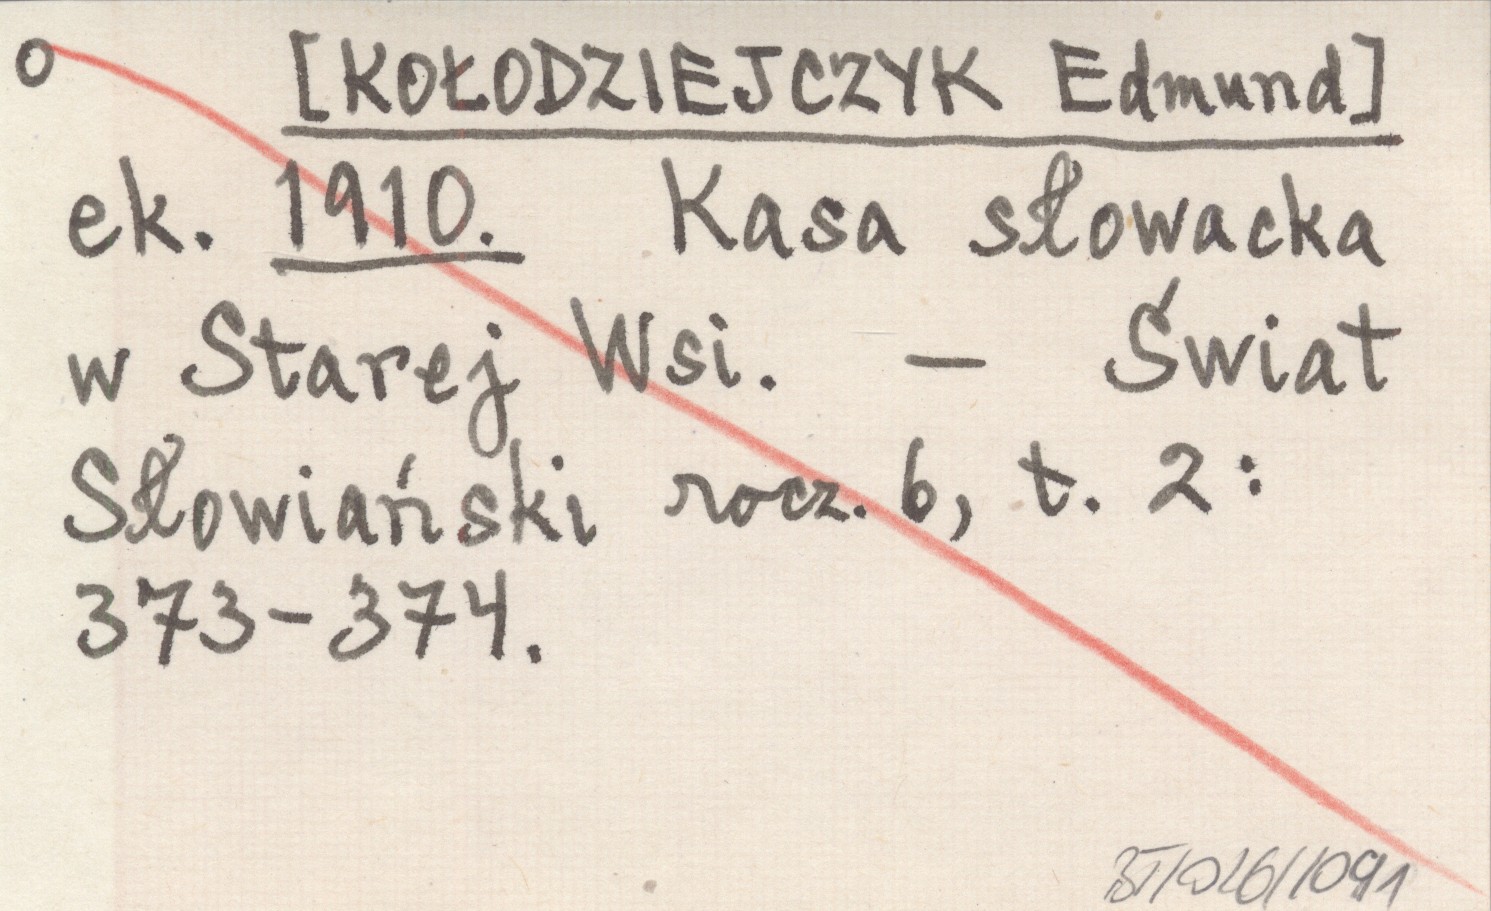 o [KOŁODZIEJCZYK Edmund]
ek. 1910. Kasa słowacka
w Starej Wsi. — Świat
Słowiański rocz. 6, t. 2:
373-374.
BT/026/1091